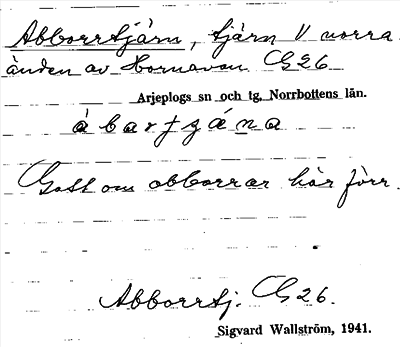 Abborrtjärn, tjärn V norra
änden av Hornavan G26
Arjeplogs sn och tg, Norrbottens län.
Gott om abborrar här förr.
Abborrtj. G26.
Sigvard Wallström, 1941.